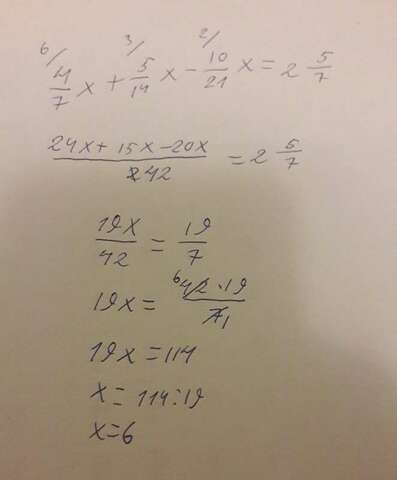 6/ 3/ 2/
4/7 x + 5/14 x - 10/21 x = 2 5/7
24x + 15x - 20x / 42 = 2 5/7
19x / 42 = 19 / 7
19x = 6 42 · 19 / 7 1
19x = 114
x = 114 : 19
x = 6